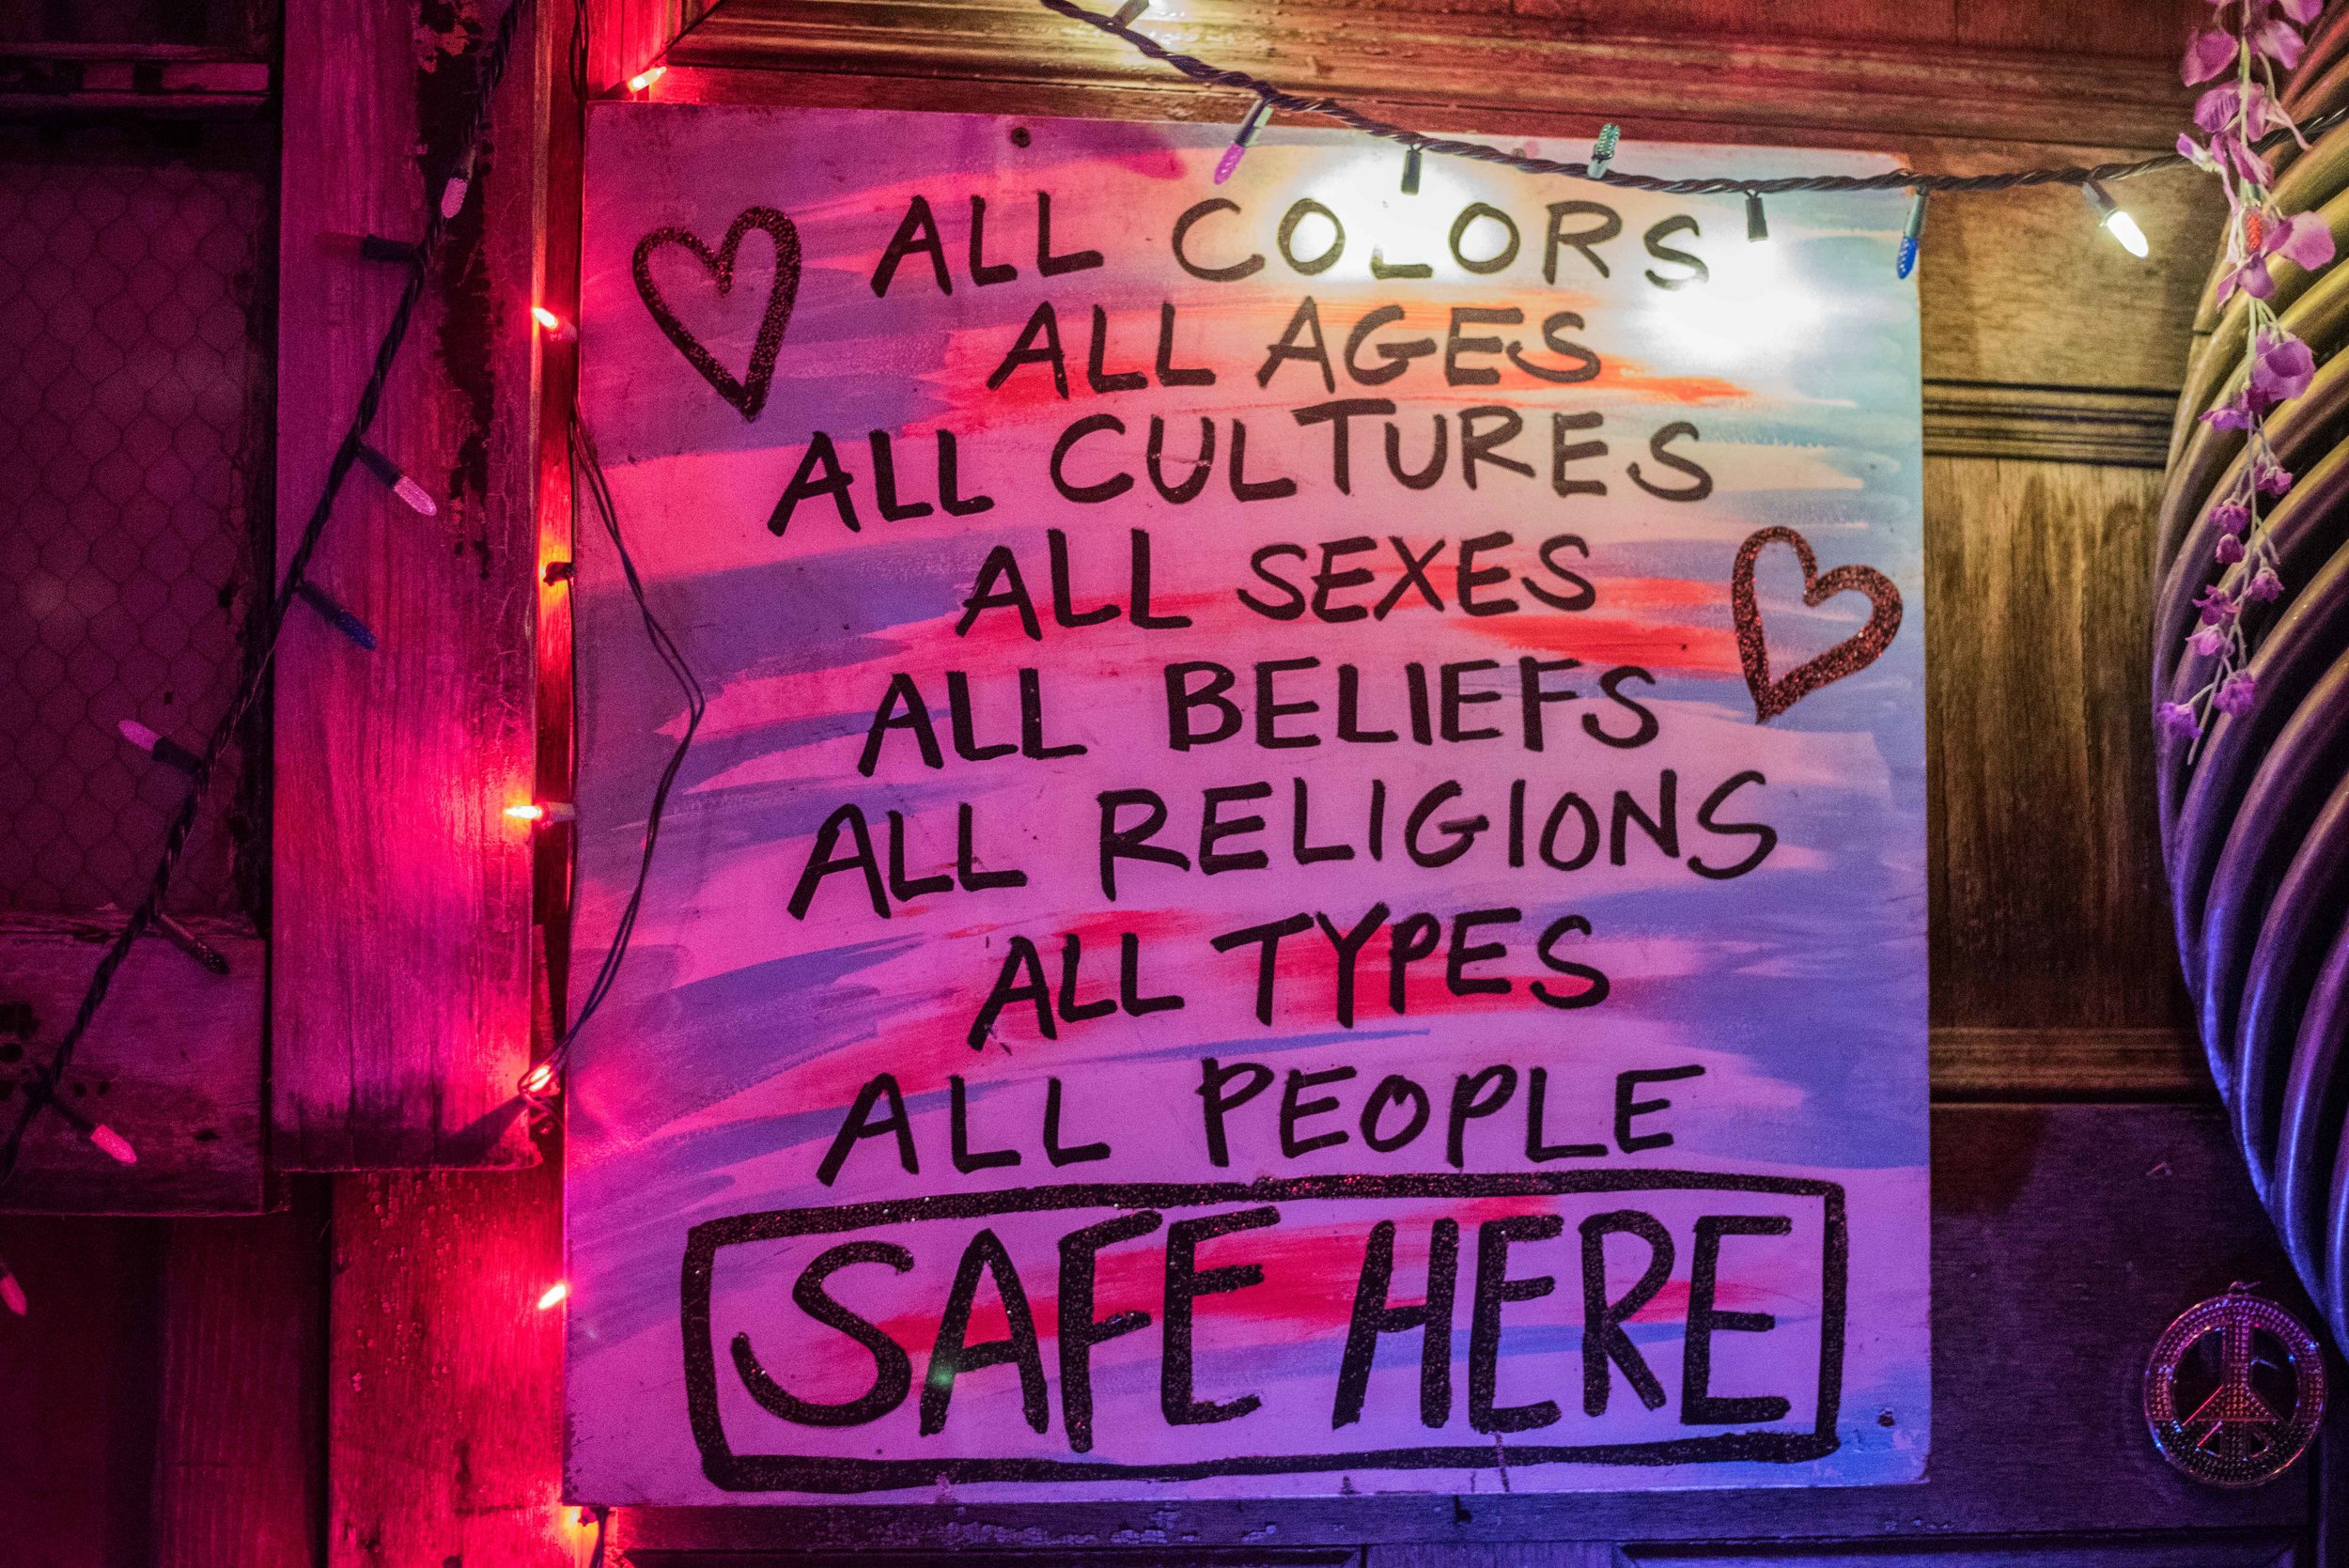 ALL COLORS
ALL AGES
ALL CULTURES
ALL SEXES
ALL BELIEFS
ALL RELIGIONS
ALL TYPES
ALL PEOPLE
SAFE HERE